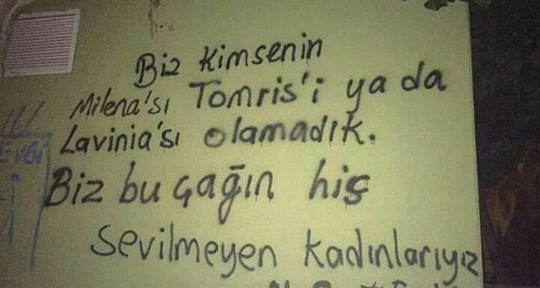 Biz kimsenin
Milena'sı Tomris'i ya da
Lavinia'sı olamadık.
Biz bu çağın hiç
sevilmeyen kadınlarıyız